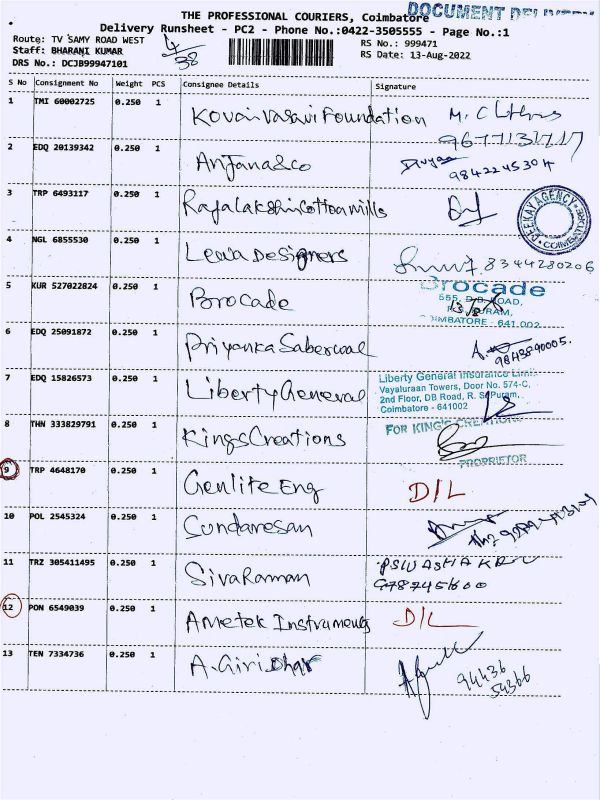 THE PROFESSIONAL COURIERS, Coimbatore
DOCUMENT DELIVERY
Delivery Runsheet - PC2 - Phone No.:0422-3505555 - Page No.:1
Route: TV SAMY ROAD WEST
4/38
RS No.: 999471
Staff: BHARANI KUMAR
RS Date: 13-Aug-2022
DRS No.: DCJB99947101
S No Consignment No Weight PCS Consignee Details Signature
1 TMI 60002725 0.250 1 Kovai Vasavi Foundation
9677131717
2 EDQ 20139342 0.250 1 Anjana & co
9842245304
3 TRP 6493117 0.250 1 Rajalakshmi cotton mills
DEEKAY AGENCY
COIMBATORE
4 NGL 6855530 0.250 1 Lewa Designers 8344280206
5 KUR 527022824 0.250 1 Brocade
Brocade
555, D.B. ROAD,
R.S. PURAM,
COIMBATORE - 641 002
6 EDQ 25091872 0.250 1 Priyanka Saberwal
9843890005.
7 EDQ 15826573 0.250 1 Liberty General
Liberty General Insurance Limi
Vayaluraan Towers, Door No. 574-C,
2nd Floor, DB Road, R. S. Puram,
Coimbatore - 641002
8 THN 333829791 0.250 1 Kings Creations
FOR KING'S CREATIONS
PROPRIETOR
9 TRP 4648170 0.250 1 Genlite Eng D/L
10 POL 2545324 0.250 1 Sundaresan
11 TRZ 305411495 0.250 1 SivaRaman
12 PON 6549039 0.250 1 Ametek Instruments D/L
13 TEN 7334736 0.250 1 A. Giridhar
94436
54366